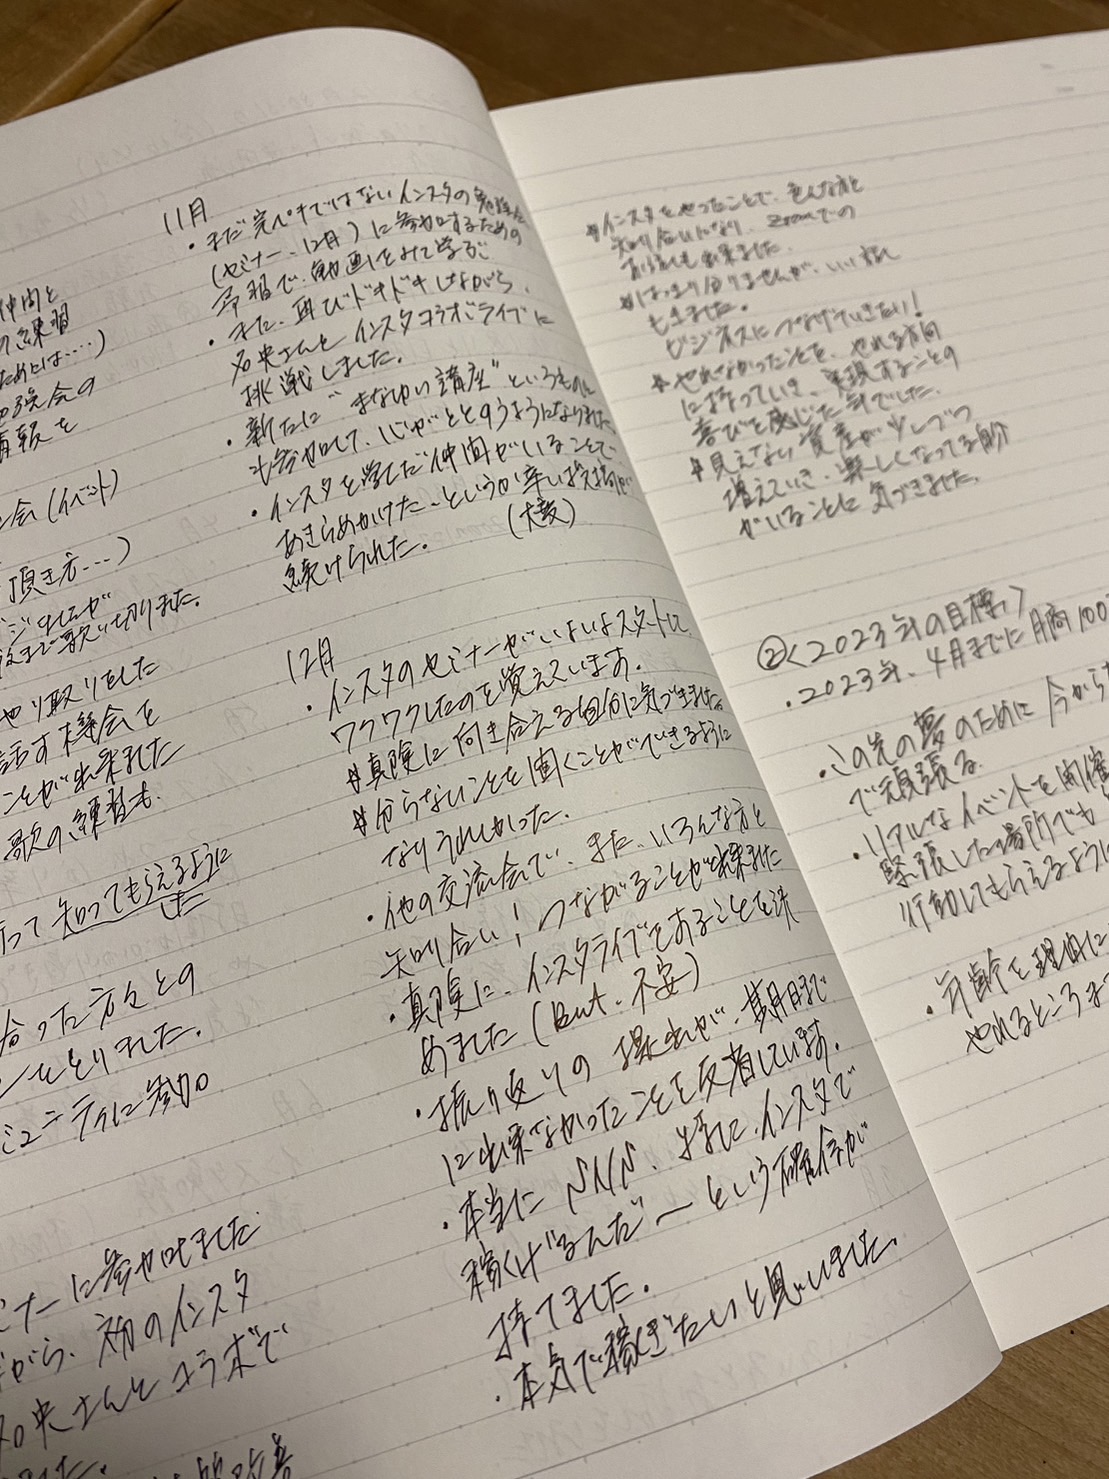 仲間と
練習
ためには‥‥)
勉強会の
情報を
会(イベント)
頂き方‥‥)
歌い切りました。
やり取りをした
話す機会を
ことが出来ました
歌の練習も
って知ってもらえるように
した
合った方々との
をとりました。
ミュニティに参加
ミナーに参加しました
がら、初のインスタ
さんとコラボで
した。
改善
11月
・まだ完ペキではないインスタの勉強に
(セミナー、12月)に参加するための
予習で、動画をみて学ぶ
・また、再びドキドキしながら、
さんとインスタコラボライブに
挑戦しました。
・新たに"まなゆい講座"というものに
も参加して、心がととのうようになりました。
・インスタを学んだ仲間がいることで
あきらめかけた、というか辛い投稿が
続けられた。 (大変)
12月
・インスタのセミナーがいよいよスタートし
ワクワクしたのを覚えています。
#真険に向き合える自分に気づきました。
#分らないことを聞くことができるように
なりうれしかった。
・他の交流会で、また、いろんな方と
知り合い、つながることが出来ました
・真険に、インスタライブをあることを決
めました(But・不安)
・振り返りの提出が、期日まで
に出来なかったことを反省しています。
・本当にSNS、特に、インスタで
稼げるんだ〜という確信が
持てました。
・本気で稼ぎたいと思いました。
#インスタをやったことで、色んな方と
知り合いになり、Zoomでの
お話しも出来ました。
#はっきり分りませんが、いい話し
もきました。
ビジネスにつなげていきたい!
#やれなかったことを、やれる方向
にもっていき、実現することの
喜びを感じた年でした。
#見えない資産が少しづつ
増えていき、楽しくなってる自分
がいることに気づきました。
②<2023年の目標>
・2023年、4月までに月商100
・この先の夢のために今から
で頑張る。
・リアルなイベントを開催
緊張した場所でも
行動してもらえるように
・年齢を理由に
やれるところまで